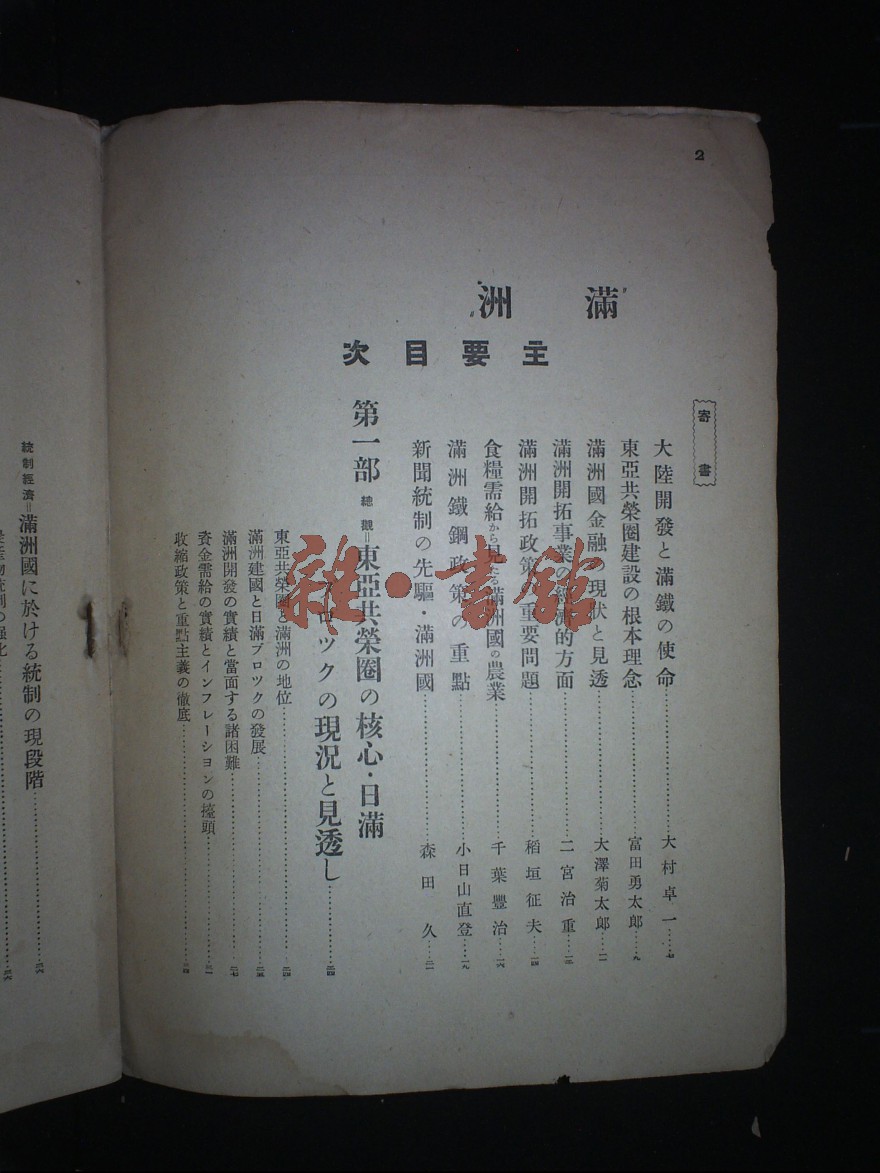 2
滿洲
主要目次
寄書
大陸開發と滿鐵の使命……大村卓一……七
東亞共榮圈建設の根本理念……富田勇太郎……九
滿洲國金融の現狀と見透……大澤菊太郎……一一
滿洲開拓事業の經濟的方面……二宮治重……一二
滿洲開拓政策の重要問題……稻垣征夫……一四
食糧需給から見たる滿洲國の農業……千葉豐治……一六
滿洲鐵鋼政策の重點……小日山直登……一九
新聞統制の先驅・滿洲國……森田久……二一
第一部 總觀=東亞共榮圈の核心・日滿
ブロックの現況と見透し……二四
東亞共榮圈と滿洲の地位……二四
滿洲建國と日滿ブロツクの發展……二五
滿洲開發の實績と當面する諸困難……二七
資金需給の實績とインフレーションの擡頭……三一
收縮政策と重點主義の徹底……三四
統制經濟=滿洲國に於ける統制の現段階……三六
農產物統制の强化……三六
雜·書館